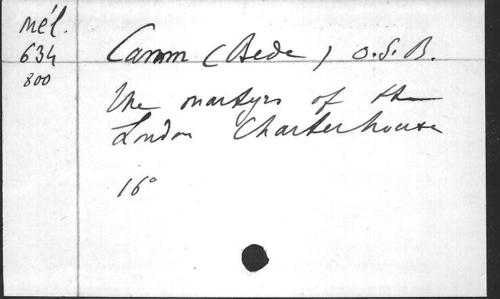 Mél.
634
800
Camm (Bede) O.S.B.
The martyrs of the
London Charterhouse
16°